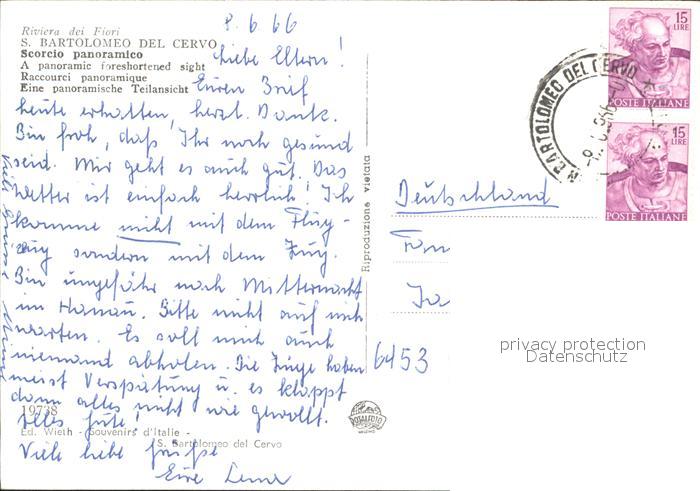 8.6.66
Riviera dei Fiori
S. BARTOLOMEO DEL CERVO
Scorcio panoramico
A panoramic foreshortened sight
Raccourci panoramique
Eine panoramische Teilansicht
Liebe Eltern!
Euren Brief
heute erhalten, herzl. Dank.
Bin froh, daß Ihr noch gesund
seid. Mir geht es auch gut. Das
Wetter ist einfach herrlich! Ich
komme nicht mit dem Flug-
zug sondern mit dem Zug.
Bin ungefähr nach Mitternacht
in Hanau. Bitte nicht auf mich
warten. Es soll mich auch
niemand abholen. Die Züge haben
meist Verspätung u. es klappt
dann alles nicht wie gewollt.
Alles Gute!
Viele liebe Grüße
Eure
Viele Grüße
19738
Ed. Wieth - Souvenirs d'Italie -
S. Bartolomeo del Cervo
Riproduzione vietata
ROTALFOTO
MILANO
15
LIRE
POSTE ITALIANE
15
LIRE
POSTE ITALIANE
BARTOLOMEO DEL CERVO
Deutschland
Fam
Ja
6453
privacy protection
Datenschutz